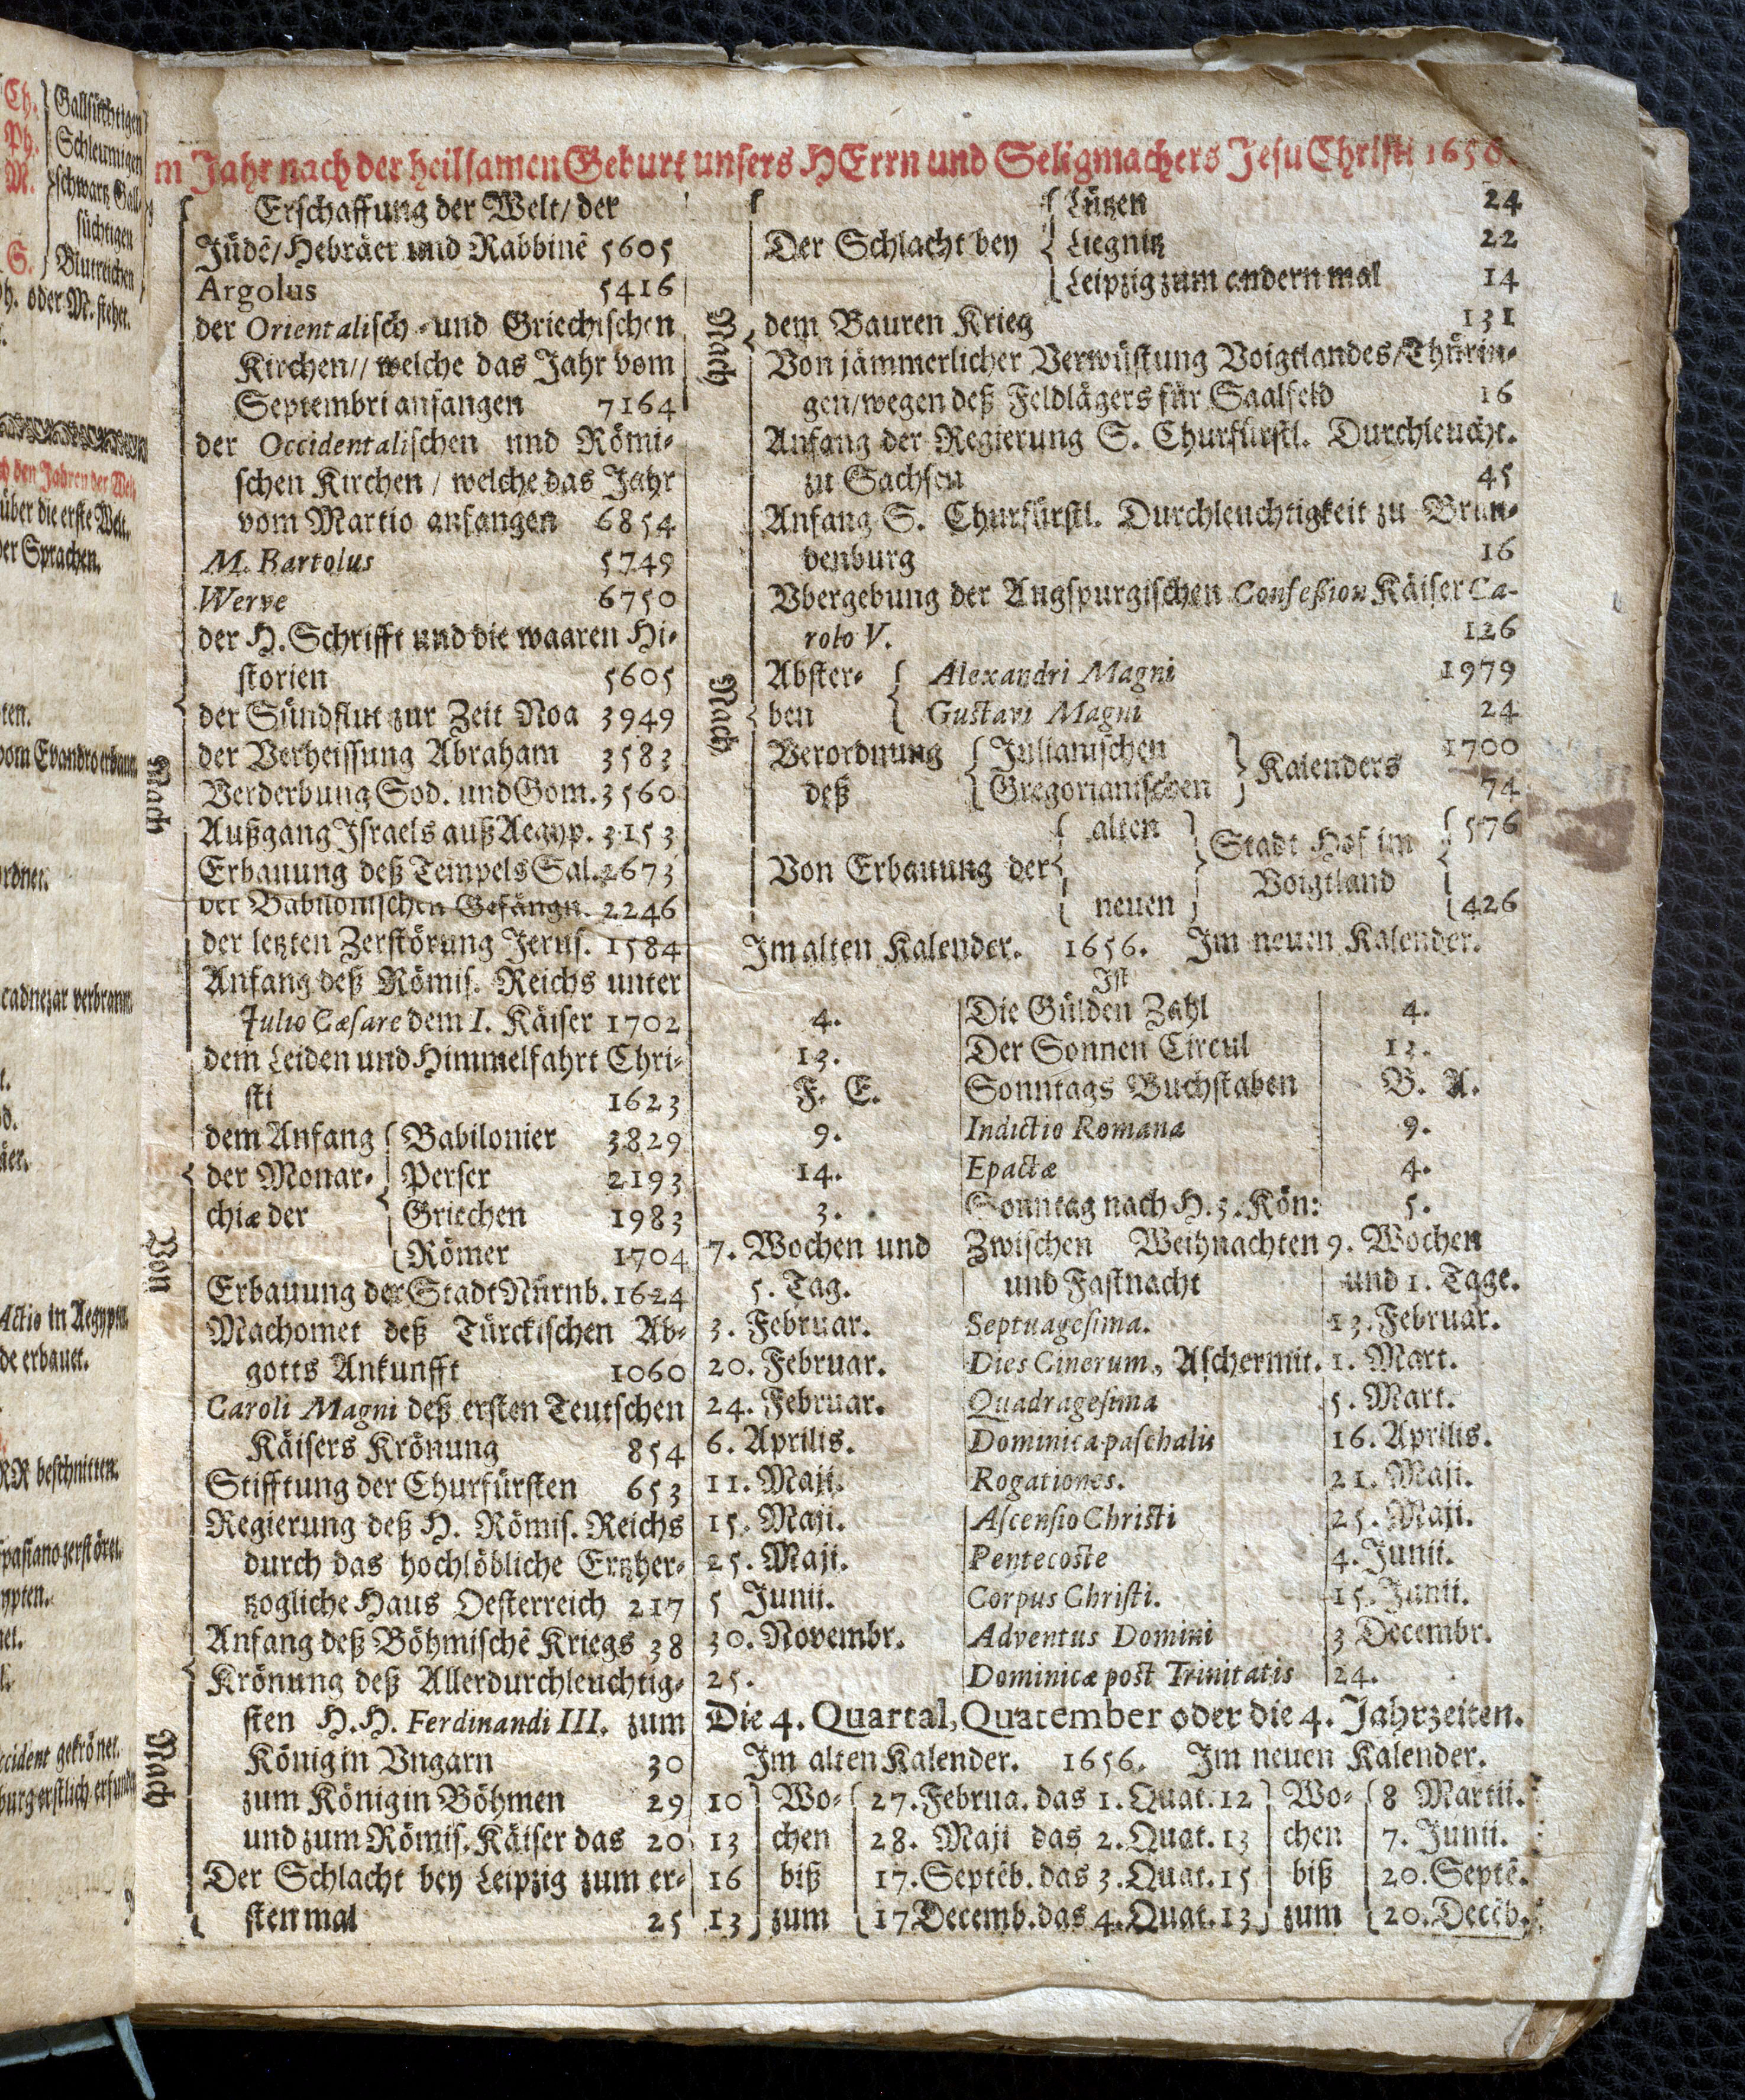 Ch.
Ph.
M.
S.
Gallsüchtigen
Schleumigen
schwartz Gall-
süchtigen
Blutreichen
h. oder M. stehet.
ch den Jahren der Welt
über die erste Welt.
der Sprachen.
ten.
vom Evandro erbauet
rdnet.
cadnezar verbrannt
t.
d.
äer.
Actio in Aegypten.
de erbauet.
RR beschnitten.
spasiano zerstöret.
ypten.
net.
l.
ccident gekrönet.
burg erstlich erfunden
m Jahr nach der heilsamen Geburt unsers HErrn und Seligmachers Jesu Christi 1656.
Erschaffung der Welt/ der
Jüdē/ Hebräer und Rabbinē 5605
Argolus 5416
der Orientalisch- und Griechischen
Kirchen// welche das Jahr vom
Septembri anfangen 7164
der Occidentalischen und Römi-
schen Kirchen / welche das Jahr
vom Martio anfangen 6854
M. Bartolus 5749
Werve 6750
der H. Schrifft und die waaren Hi-
storien 5605
der Sündflut zur Zeit Noa 3949
Nach
der Verheissung Abraham 3583
Verderbung Sod. und Gom. 3560
Außgang Israels auß Aegyp. 3153
Erbauung deß Tempels Sal. 2673
der Babilonischen Gefängn. 2246
der letzten Zerstörung Jerus. 1584
Anfang deß Römis. Reichs unter
Julio Cæsare dem I. Käiser 1702
dem Leiden und Himmelfahrt Chri-
sti 1623
Von
dem Anfang { Babilonier 3829
der Monar- { Perser 2193
chiæ der { Griechen 1983
{ Römer 1704
Erbauung der Stadt Nürnb. 1624
Machomet deß Türckischen Ab-
gotts Ankunfft 1060
Caroli Magni deß ersten Teutschen
Käisers Krönung 854
Stifftung der Churfürsten 653
Regierung deß H. Römis. Reichs
durch das hochlöbliche Ertzher-
tzogliche Haus Oesterreich 217
Anfang deß Böhmischē Kriegs 38
Nach
Krönung deß Allerdurchleuchtig-
sten H.H. Ferdinandi III. zum
König in Vngarn 30
zum König in Böhmen 29
und zum Römis. Käiser das 20
Der Schlacht bey Leipzig zum er-
sten mal 25
{ Lützen 24
Der Schlacht bey { Liegnitz 22
{ Leipzig zum andern mal 14
Nach
dem Bauren Krieg 131
Von jämmerlicher Verwüstung Voigtlandes/ Thürin-
gen/ wegen deß Feldlägers für Saalfeld 16
Anfang der Regierung S. Churfürstl. Durchleucht.
zu Sachsen 45
Anfang S. Churfürstl. Durchleuchtigkeit zu Bran-
denburg 16
Vbergebung der Augspurgischen Confeßion Käiser Ca-
rolo V. 126
Nach
Abster- { Alexandri Magni 1979
ben { Gustavi Magni 24
Verordnung { Julianischen } Kalenders 1700
deß { Gregorianischen } 74
Von Erbauung der { alten } Stadt Hof im Voigtland { 576
{ neuen } { 426
Im alten Kalender. 1656. Im neuen Kalender.
Ist
4. Die Gülden Zahl 4.
13. Der Sonnen Circul 13.
F. E. Sonntags Buchstaben B. A.
9. Indictio Romana 9.
14. Epactæ 4.
3. Sonntag nach H. 3. Kön: 5.
7. Wochen und Zwischen Weihnachten 9. Wochen
5. Tag. und Fastnacht und 1. Tage.
3. Februar. Septuagesima. 13. Februar.
20. Februar. Dies Cinerum, Aschermit. 1. Mart.
24. Februar. Quadragesima 5. Mart.
6. Aprilis. Dominica paschalis 16. Aprilis.
11. Maji. Rogationes. 21. Maji.
15. Maji. Ascensio Christi 25. Maji.
25. Maji. Pentecoste 4. Junii.
5 Junii. Corpus Christi. 15. Junii.
30. Novembr. Adventus Domini 3 Decembr.
25. Dominicæ post Trinitatis 24.
Die 4. Quartal, Quatember oder die 4. Jahrzeiten.
Im alten Kalender. 1656. Im neuen Kalender.
10 } Wo- { 27. Februa. das 1. Quat. 12 } Wo- { 8 Martii.
13 chen 28. Maji das 2. Quat. 13 chen 7. Junii.
16 biß 17. Septēb. das 3. Quat. 15 biß 20. Septē.
13 } zum { 17 Decemb. das 4. Quat. 13 } zum { 20. Decēb.